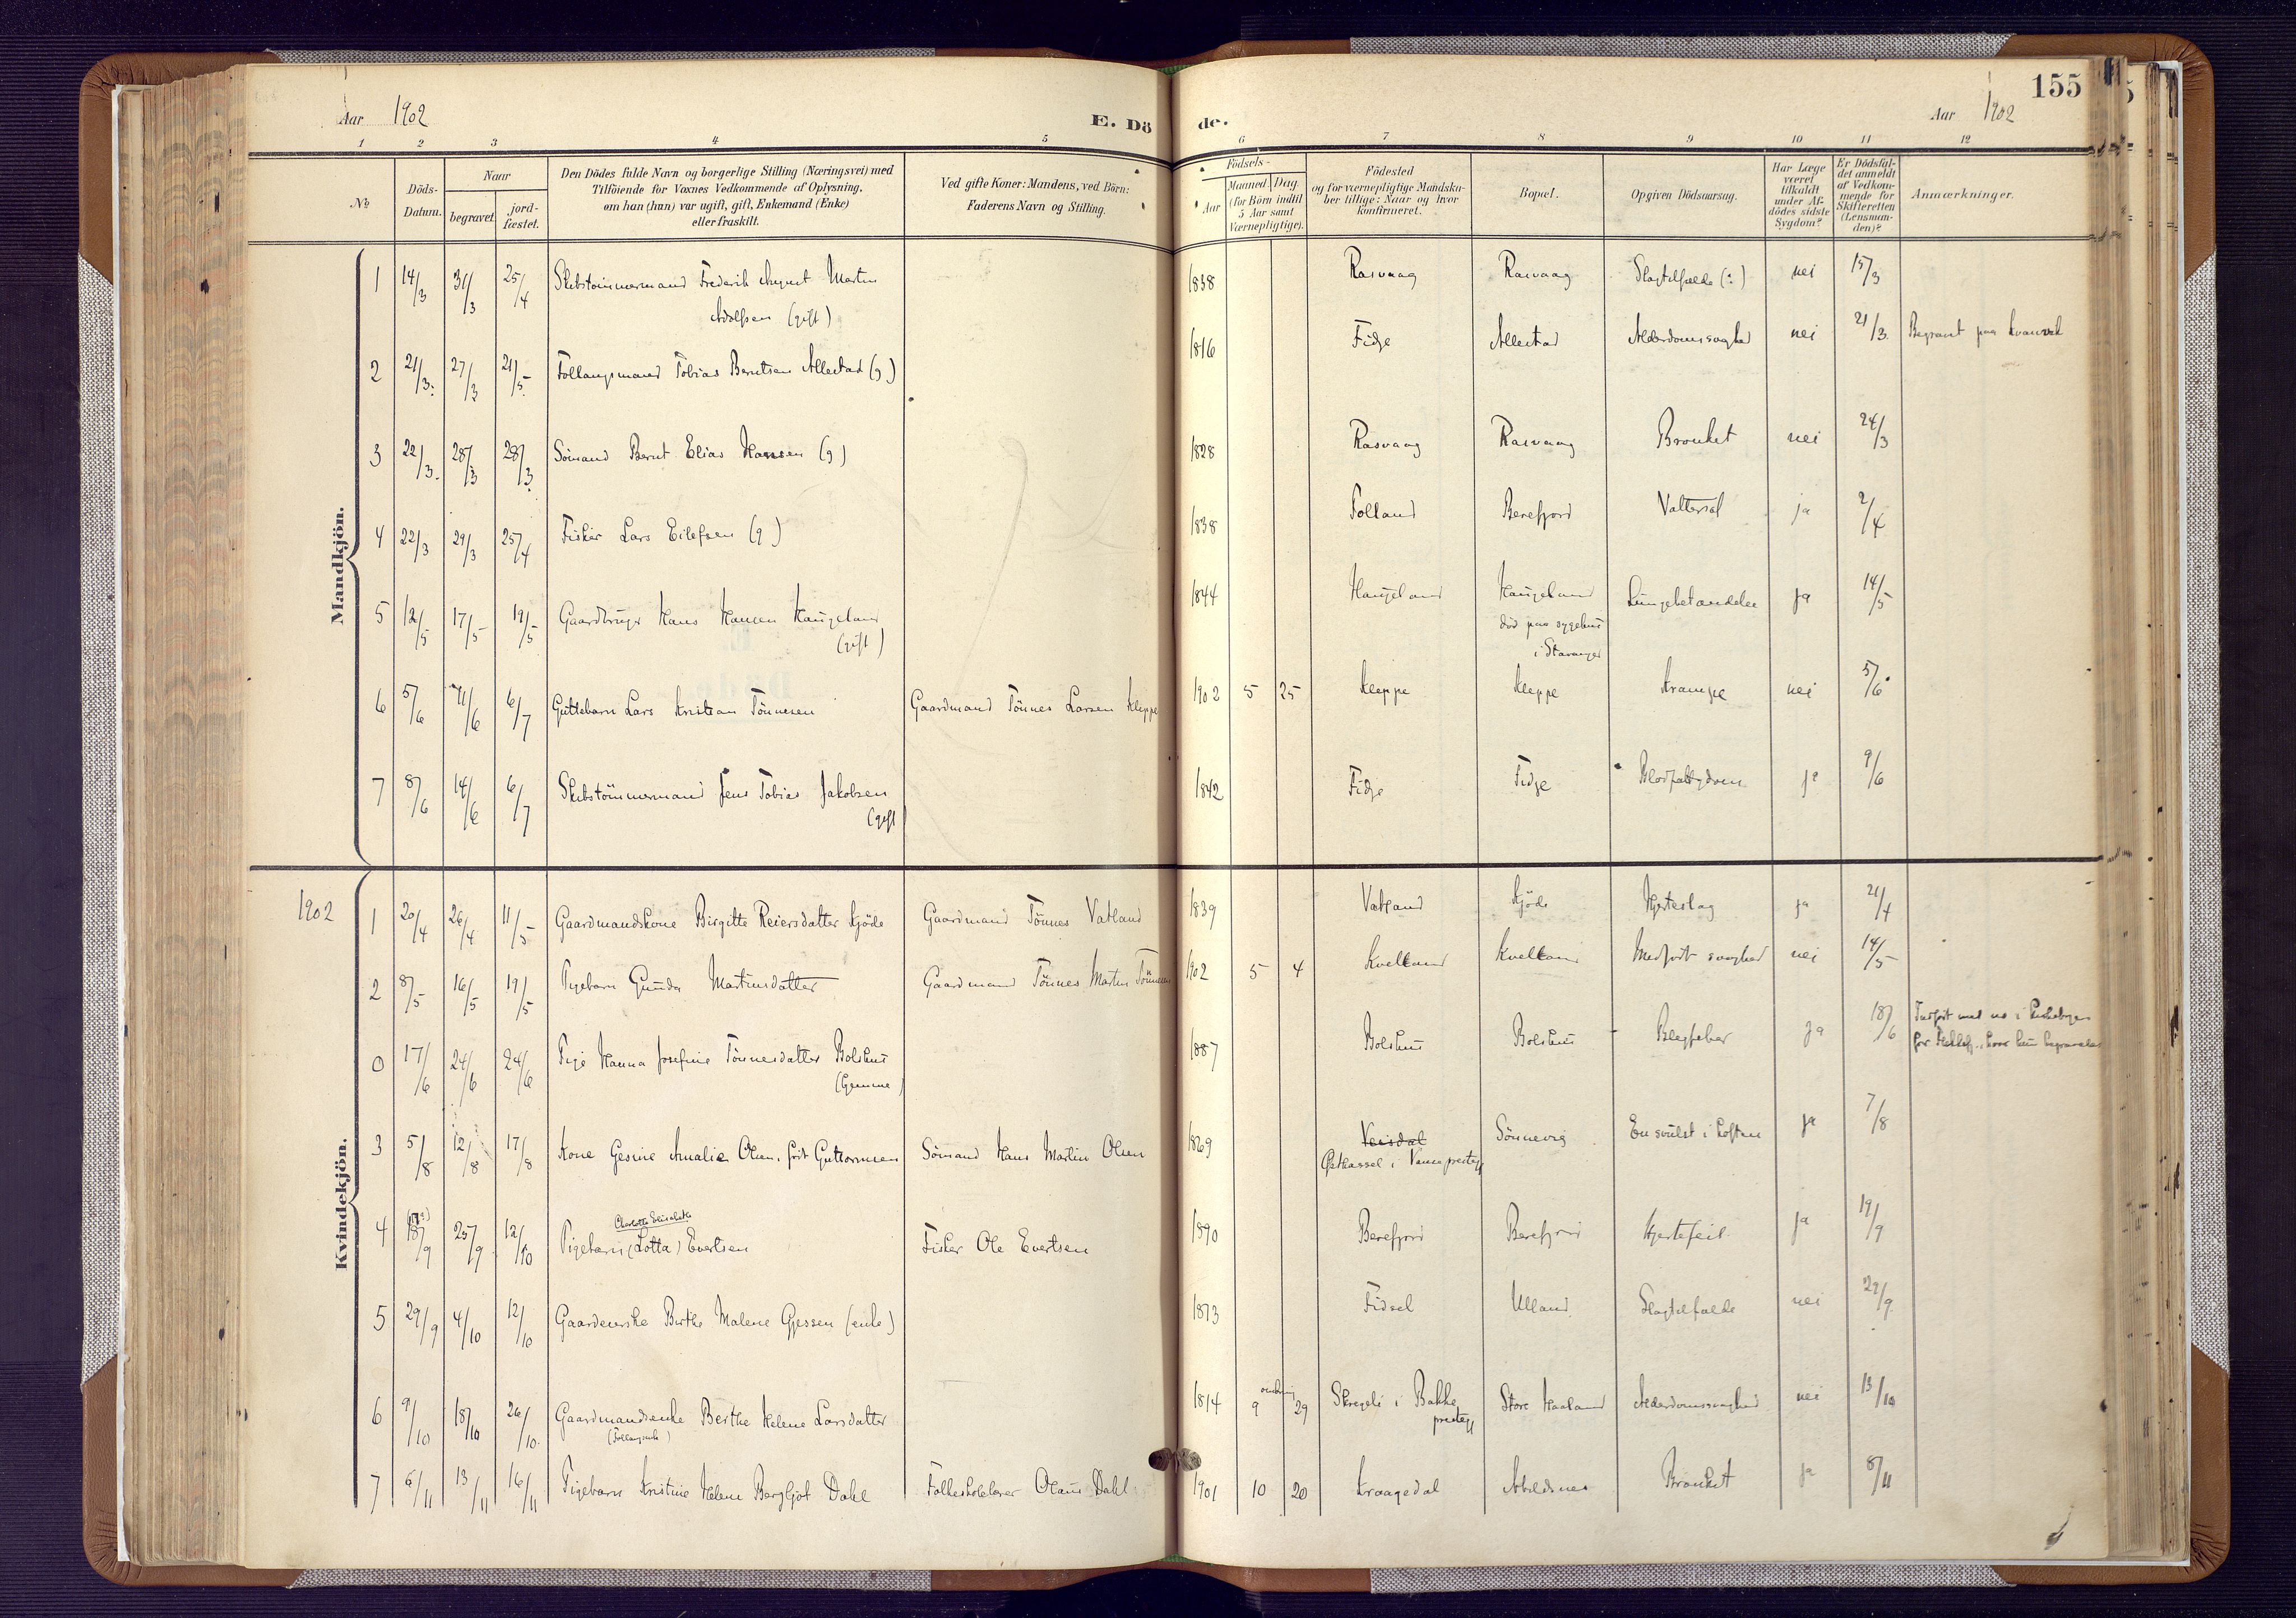 155
Aar 1902
E. Dö de.
Aar 1902
1 2 3 4 5 6 7 8 9 10 11 12
No
Döds-Datum.
Naar
begravet.
jord-fæstet.
Den Dödes fulde Navn og borgerlige Stilling (Næringsvei) med
Tilföiende for Voxnes Vedkommende af Oplysning,
om han (hun) var ugift, gift, Enkemand (Enke)
eller fraskilt.
Ved gifte Koner: Mandens, ved Börn:
Faderens Navn og Stilling.
Födsels-
Aar
Maaned. Dag.
(for Börn indtil
5 Aar samt
Værnepligtige).
Födested
og for værnepligtige Mandska-
ber tillige: Naar og hvor
konfirmeret.
Bopæl.
Opgiven Dödsaarsag.
Har Læge
været
tilkaldt
under Af-
dödes sidste
Sygdom?
Er Dödsfal-
det anmeldt
af Vedkom-
mende for
Skifteretten
(Lensman-
den)?
Anmærkninger.
Mandkjön.
1 14/3 31/3 25/4 Skibstömmermand Frederik August Martin 1838 Rasvaag Rasvaag Slagtilfælde nei 15/3
Adolfsen (gift)
2 21/3 27/3 21/5 Follaugsmand Tobias Berntsen Allestad (g) 1816 Fidje Allestad Alderdomssvaghed nei 21/3 Begravet paa Kvanvik
3 22/3 28/3 28/3 Sömand Bernt Elias Hansen (g) 1828 Rasvaag Rasvaag Bronkit nei 24/3
4 22/3 29/3 25/4 Fisker Lars Eilefsen (g) 1838 Folland Berefjord Vattersot ja 2/4
5 12/5 17/5 19/5 Gaardbruger Hans Hansen Haugeland 1844 Haugeland Haugeland Lungebetændelse ja 14/5
(gift)
död paa sygehus
i Stavanger
6 5/6 11/6 6/7 Guttebarn Lars Kristian Tönnesen Gaardmand Tönnes Larsen Kleppe 1902 5 25 Kleppe Kleppe Krampe nei 5/6
7 8/6 14/6 6/7 Skibstömmermand Jens Tobias Jakobsen 1842 Fidje Fidje ja 9/6
(gift)
1902
Kvindekjön.
1 20/4 26/4 11/5 Gaardmandskone Birgitte Reiersdatter Kjöde Gaardmand Tönnes Vatland 1839 Vatland Kjöde Hjerteslag ja 21/4
2 8/5 16/5 19/5 Pigebarn Gunda Martinsdatter Gaardmand Tönnes Martin Tönnesen 1902 5 4 Kvelland Kvelland Medfödt svaghed nei 14/5
0 17/6 24/6 24/6 Pige Hanna Josefine Tönnesdatter Bolshus 1887 Bolshus Bolshus Blegfeber ja 18/6 Indfört med no i Kirkebogen
(Gemme)
for Flekkef., hvor hun begravedes
3 5/8 12/8 17/8 Kone Gesine Amalie Olsen, födt Guttormsen Sömand Hans Martin Olsen 1869 Veisdal Sönnevig En svulst i hoften ja 7/8
i Vanse prestegj
4 18/9 25/9 12/10 Pigebarn (Lotta) Evertsen Fisker Ole Evertsen 1890 Berefjord Berefjord Hjertefeil ja 19/9
Charlotte Elisabeth
5 29/9 4/10 12/10 Gaardeierske Birthe Malene Gjessen (enke) 1873 Fidsel Ulland Slagtilfælde nei 29/9
6 9/10 18/10 26/10 Gaardmandsenke Berthe Helene Larsdatter 1814 9 29 Skregeli i Bakke Store Haaland Alderdomssvaghed nei 13/10
prestegj
7 6/11 13/11 16/11 Pigebarn Kristine Helene Bergljot Dahl Folkeskolelærer Olaus Dahl 1901 10 20 Kraagedal Abeldsnes Bronkit ja 8/11